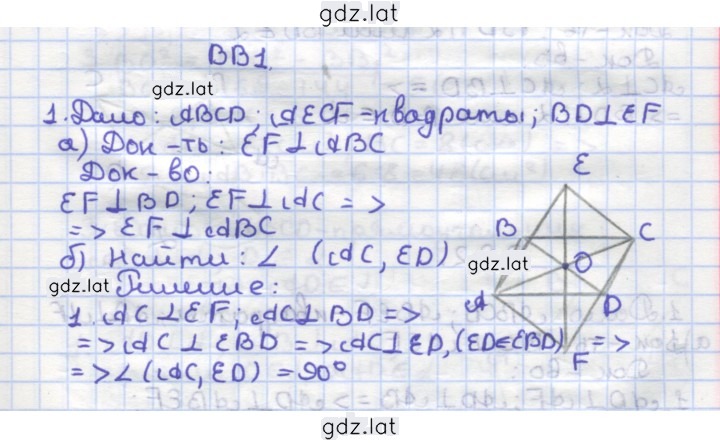 gdz.lat
ВВ1.
gdz.lat
1. Дано: ABCD; AECF = квадраты; BD⊥EF
а) Док-ть: EF⊥ABC
Док-во:
EF⊥BD; EF⊥AC =>
=> EF⊥ABC
б) Найти: ∠ (AC, ED)
gdz.lat
gdz.lat Решение:
1. AC⊥EF; AC⊥BD =>
=> AC⊥EBD => AC⊥ED, (ED∈EBD) =>
=> ∠ (AC, ED) = 90°
E
B
C
O
A
D
F
gdz.lat